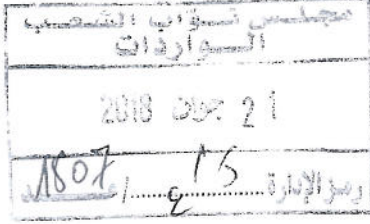 مجلس نواب الشعب
الواردات
21 جوان 2018
رمز الإدارة ......... / عـــدد 1807